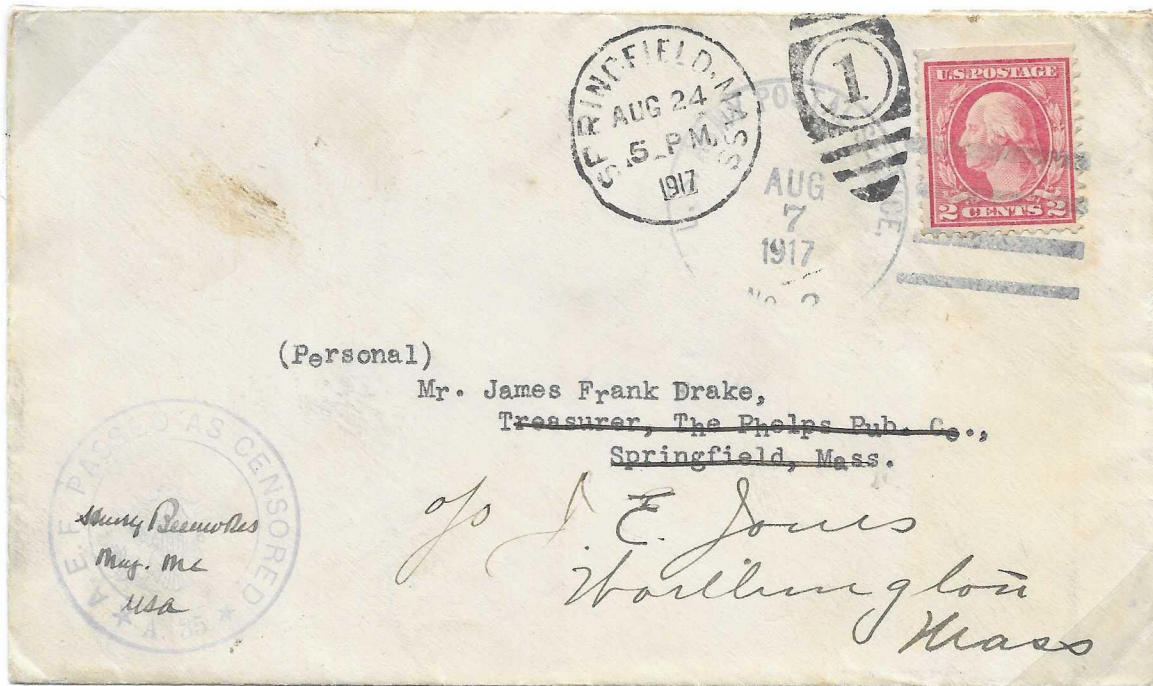 SPRINGFIELD, MASS
AUG 24
5 PM
1917
1
U.S. POSTAGE
2 CENTS 2
POSTAL SERVICE.
AUG
7
1917
No. 2
(Personal)
Mr. James Frank Drake,
Treasurer, The Phelps Pub. Co.,
Springfield, Mass.
c/o J E. Jones
Worthington
Mass
A.E.F. PASSED AS CENSORED
Henry Beeuwkes
Maj. MC
USA
A. 35